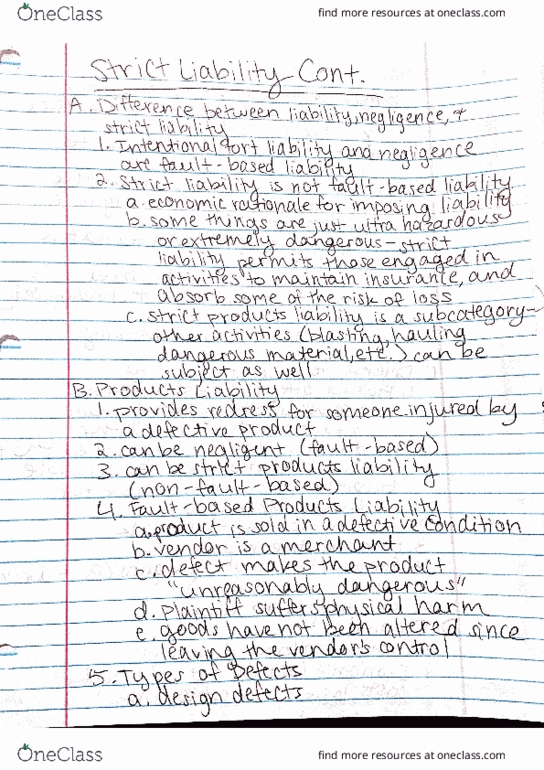 OneClass
find more resources at oneclass.com
Strict Liability Cont.
A. Difference between liability, negligence, +
strict liability
1. Intentional tort liability and negligence
are fault-based liability
2. Strict liability is not fault-based liability
a. economic rationale for imposing liability
b. some things are just ultra hazardous
or extremely dangerous - strict
liability permits those engaged in
activities to maintain insurance, and
absorb some of the risk of loss
c. strict products liability is a subcategory-
other activities (blasting, hauling
dangerous material, etc.) can be
subject as well
B. Products Liability
1. provides redress for someone injured by
a defective product
2. can be negligent (fault-based)
3. can be strict products liability
(non-fault-based)
4. Fault-based Products Liability
a. product is sold in a defective condition
b. vendor is a merchant
c. defect makes the product
"unreasonably dangerous"
d. plaintiff suffers physical harm
e. goods have not been altered since
leaving the vendor's control
5. Types of Defects
a. design defects
OneClass
find more resources at oneclass.com